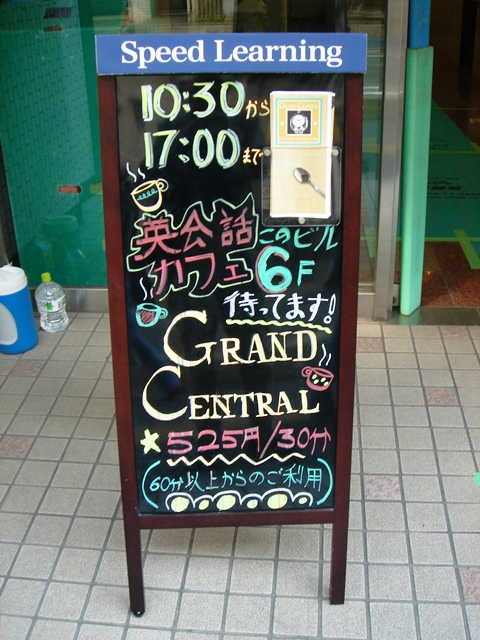 Speed Learning
10:30から
17:00まで
英会話
カフェ
このビル
6F
待ってます!
GRAND
CENTRAL
525円/30分
(60分以上からのご利用)